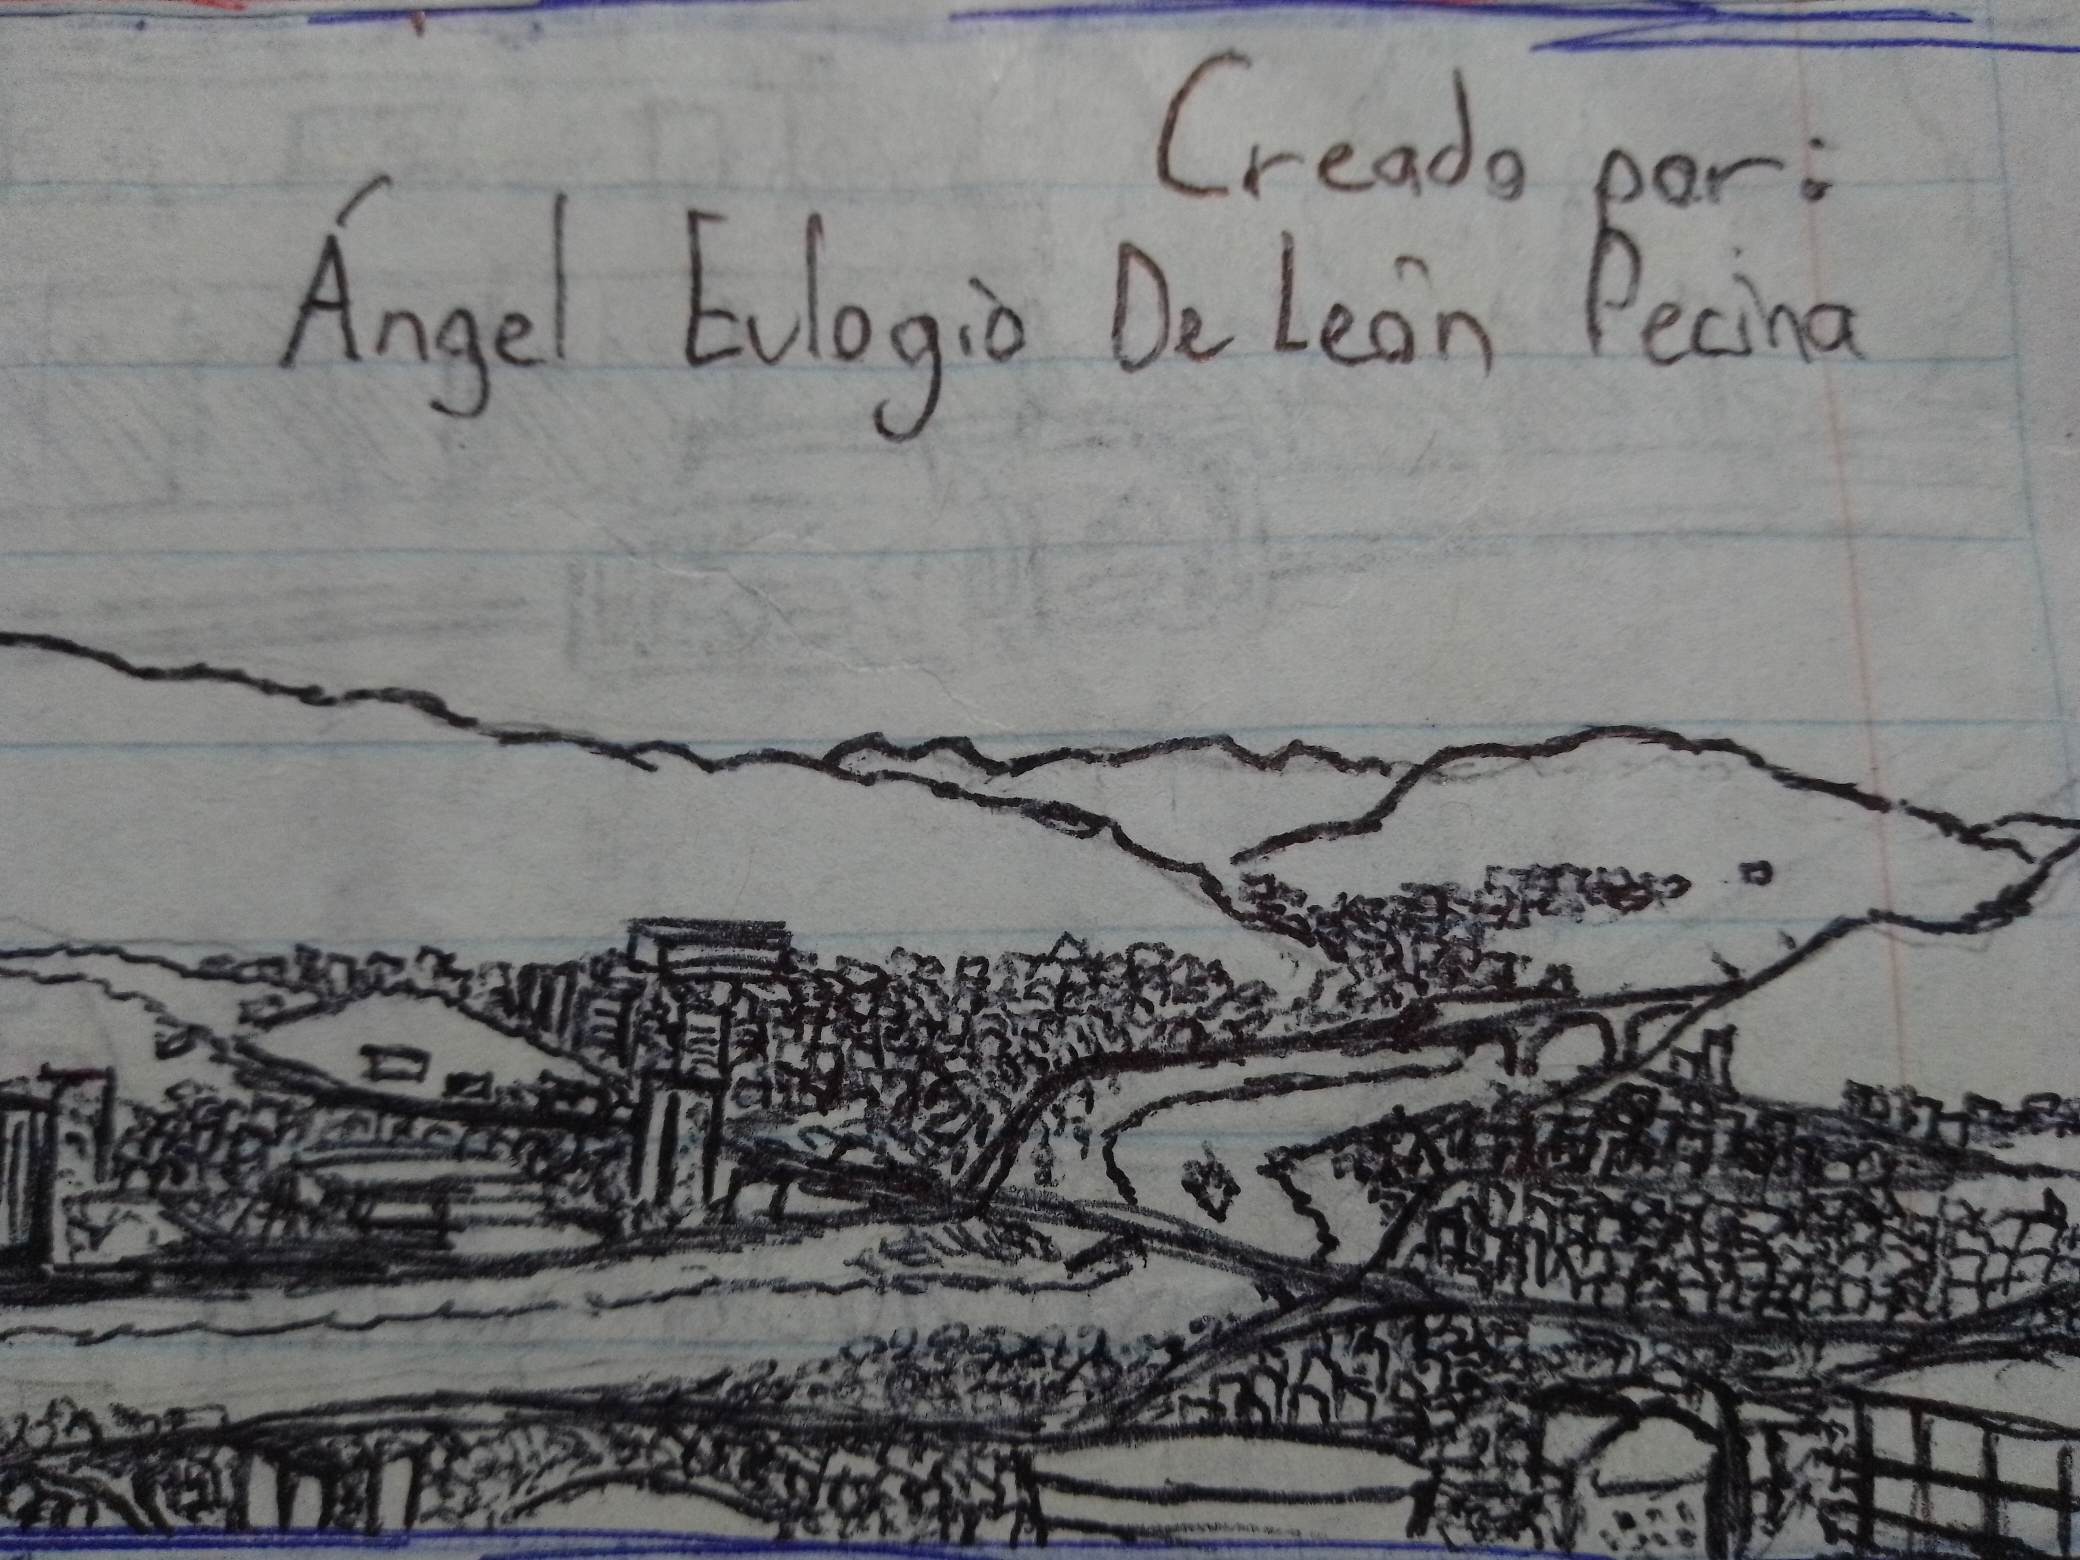 Creado por:
Ángel Eulogio De León Pecina